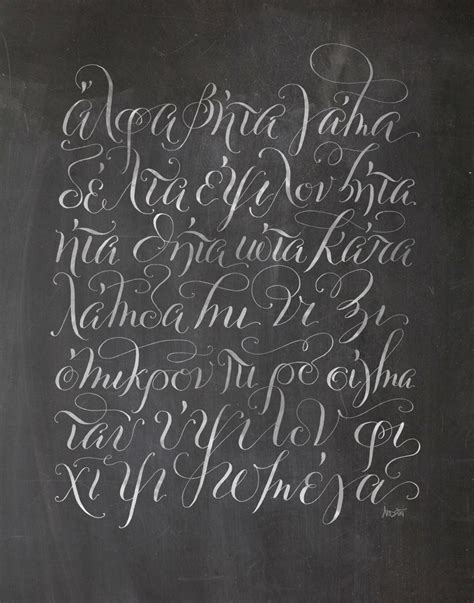 άλφα βήτα γάμα
δέλτα έψιλον ζήτα
ήτα θήτα ιώτα κάπα
λάμδα μι νι ξι
όμικρον πι ρο σίγμα
ταυ ύψιλον φι
χι ψι ωμέγα